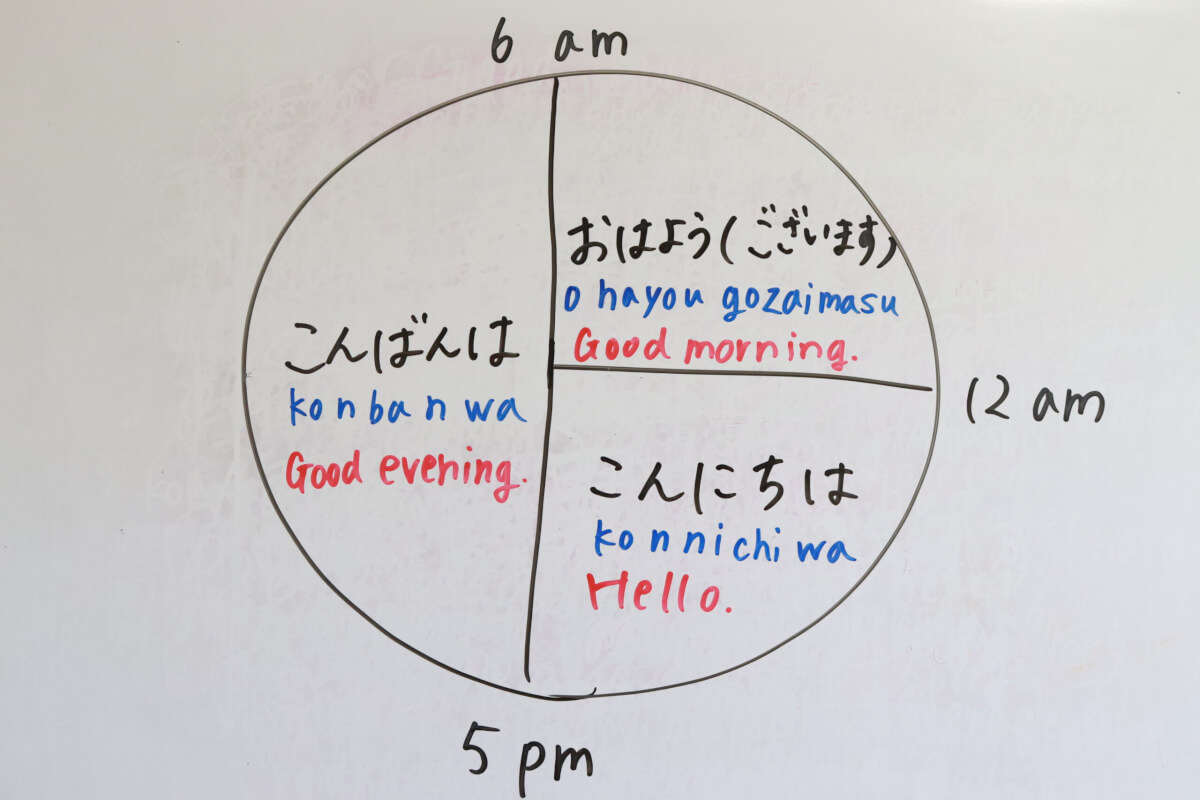 6 am
おはよう(ございます)
o hayou gozaimasu
Good morning.
12 am
こんにちは
konnichi wa
Hello.
5 pm
こんばんは
konban wa
Good evening.